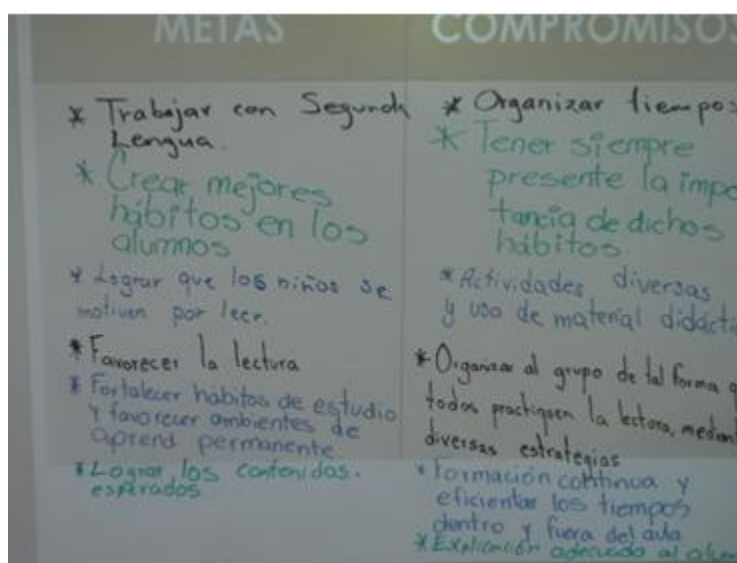 METAS
* Trabajar con Segunda
Lengua.
* Crear mejores
hábitos en los
alumnos
* Lograr que los niños se
motiven por leer.
* Favorecer la lectura
* Fortalecer habitos de estudio
y favorecer ambientes de
aprend permanente
* Lograr los contenidos.
esperados
COMPROMISOS
* Organizar tiempos
* Tener siempre
presente la impo
tancia de dichos
hábitos.
* Actividades diversas
y uso de material didácti
* Organizar al grupo de tal forma q
todos practiquen la lectura, mediant
diversas estrategias
* Formación continua y
eficientar los tiempos
dentro y fuera del aula
* Explicación adecuada al alum